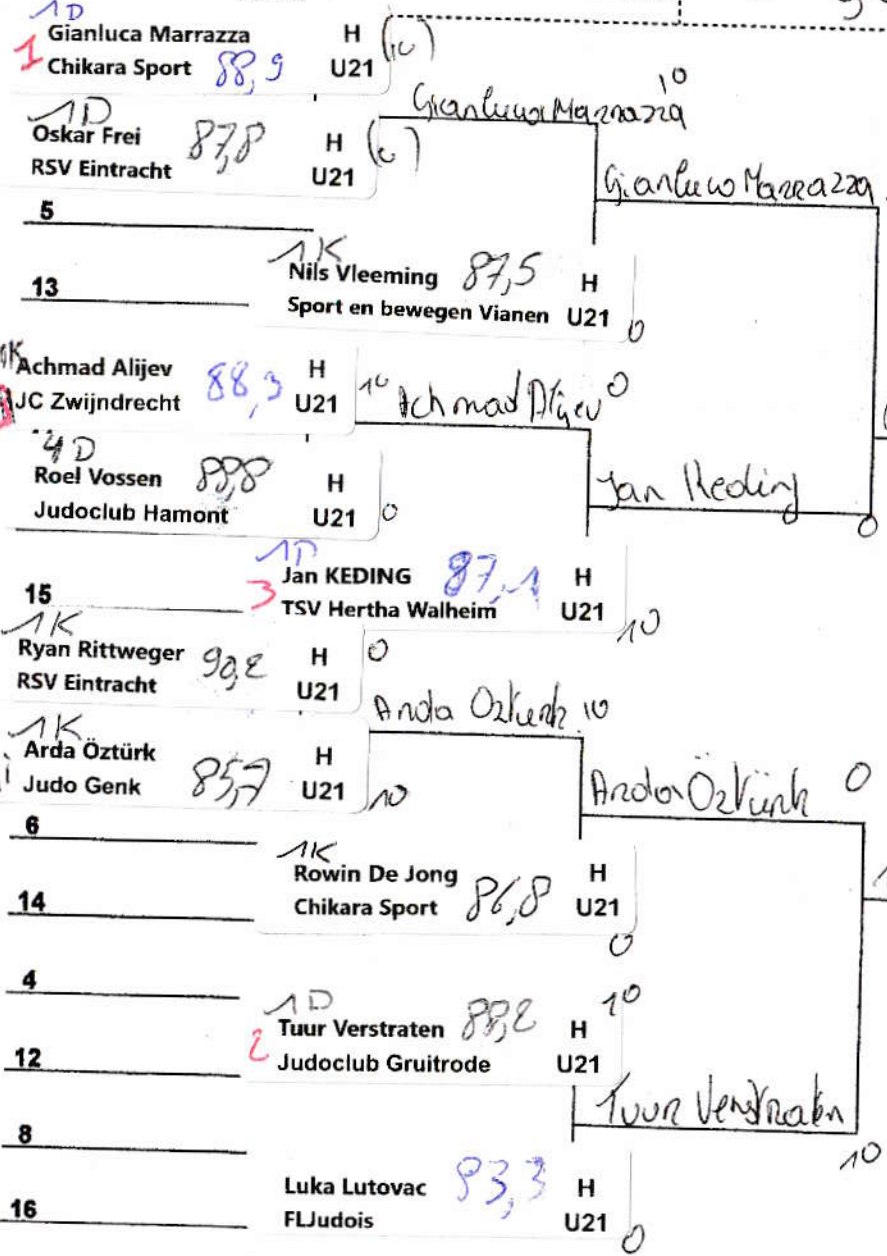 1D
Gianluca Marrazza H (10)
1 Chikara Sport 88,9 U21
Gianluca Marrazza 10
1D
Oskar Frei 87,8 H (0)
RSV Eintracht U21
Gianluca Marrazza
5
1K
Nils Vleeming 87,5 H
13
Sport en bewegen Vianen U21 0
1K
Achmad Alijev 88,3 H
JC Zwijndrecht U21 10
Achmad Alijev 0
4D
Roel Vossen 88,8 H
Judoclub Hamont U21 0
Jan Keding 0
1D
Jan KEDING 87,1 H
15
3 TSV Hertha Walheim U21 10
1K
Ryan Rittweger 90,2 H 0
RSV Eintracht U21
Arda Öztürk 10
1K
Arda Öztürk H
Judo Genk 85,7 U21 10
Arda Öztürk 0
6
1K
Rowin De Jong H
14
Chikara Sport 86,8 U21 0
4
1D
Tuur Verstraten 88,2 H 10
12
2 Judoclub Gruitrode U21
Tuur Verstraten 10
8
Luka Lutovac 83,3 H
16
FLJudois U21 0